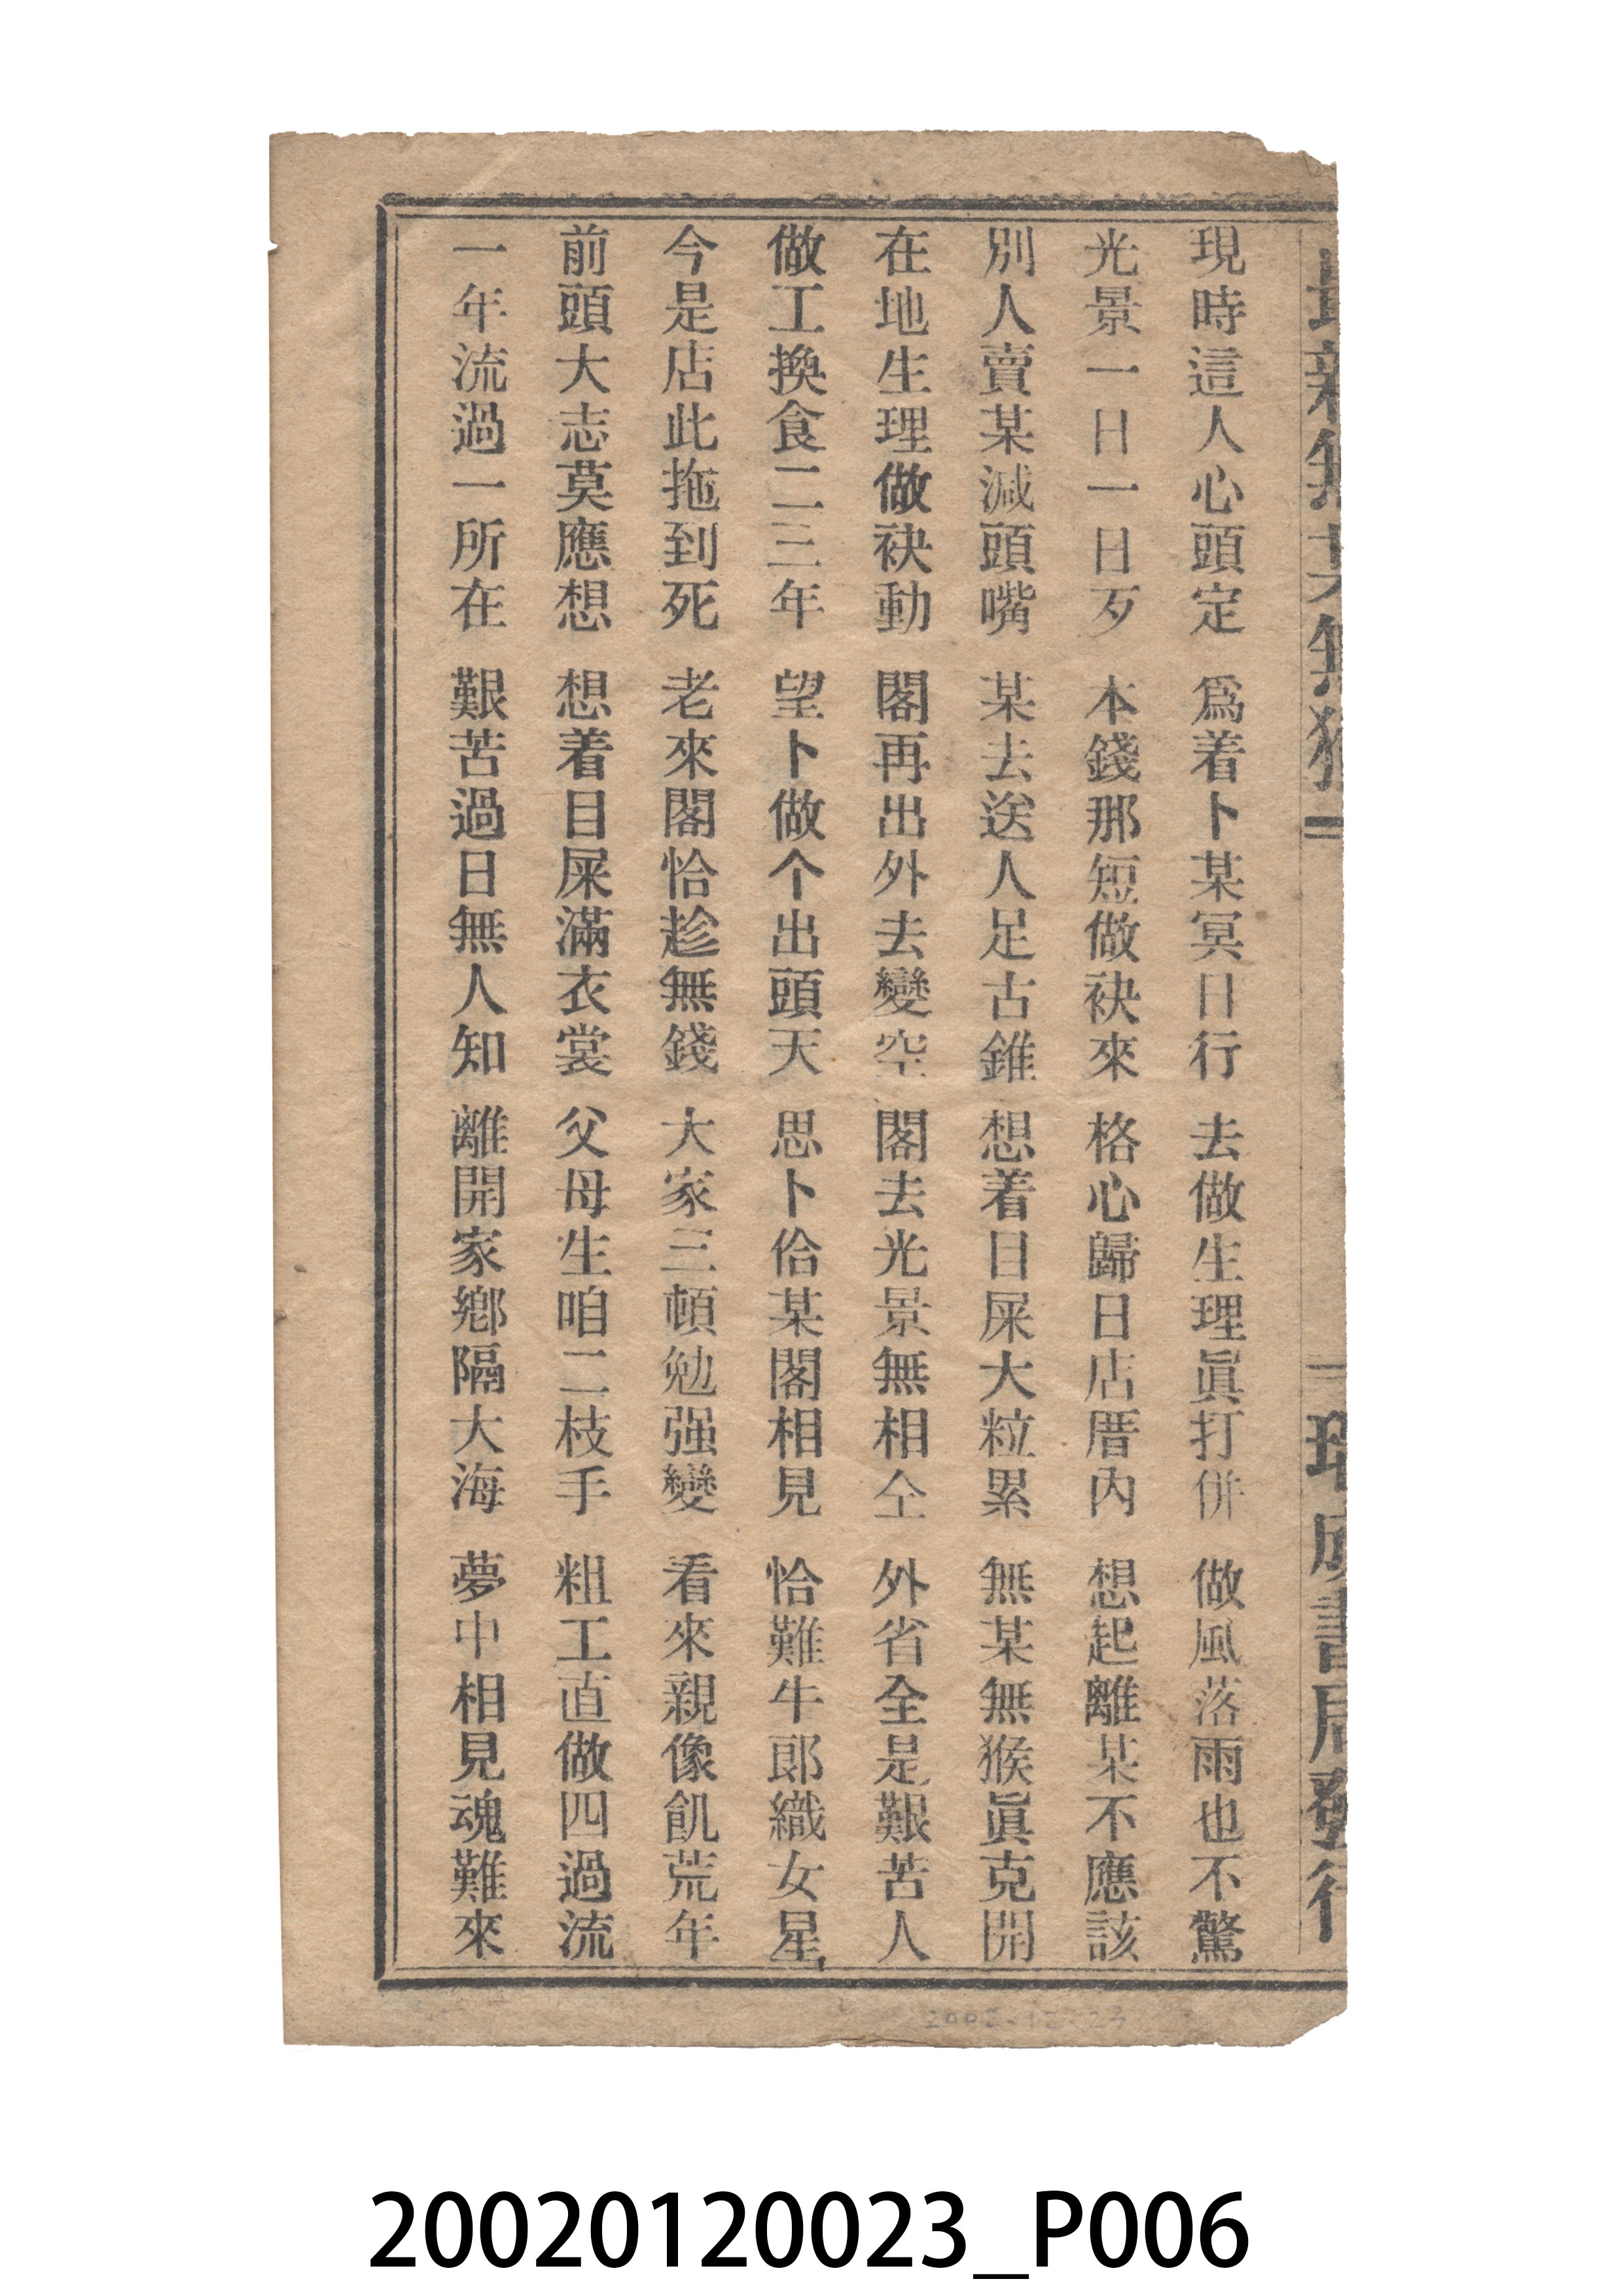 最新無某無猴
瑞成書局發行
現時這人心頭定 爲着卜某冥日行 去做生理眞打併 做風落雨也不驚
光景一日一日歹 本錢那短做袂來 格心歸日店厝內 想起離某不應該
別人賣某減頭嘴 某去送人足古錐 想着目屎大粒累 無某無猴眞克開
在地生理做袂動 閣再出外去變空 閣去光景無相仝 外省全是艱苦人
做工換食二三年 望卜做个出頭天 思卜佮某閣相見 恰難牛郎織女星
今是店此拖到死 老來閣恰趁無錢 大家三頓勉强變 看來親像飢荒年
前頭大志莫應想 想着目屎滿衣裳 父母生咱二枝手 粗工直做四過流
一年流過一所在 艱苦過日無人知 離開家鄉隔大海 夢中相見魂難來
2002.12.23
20020120023_P006